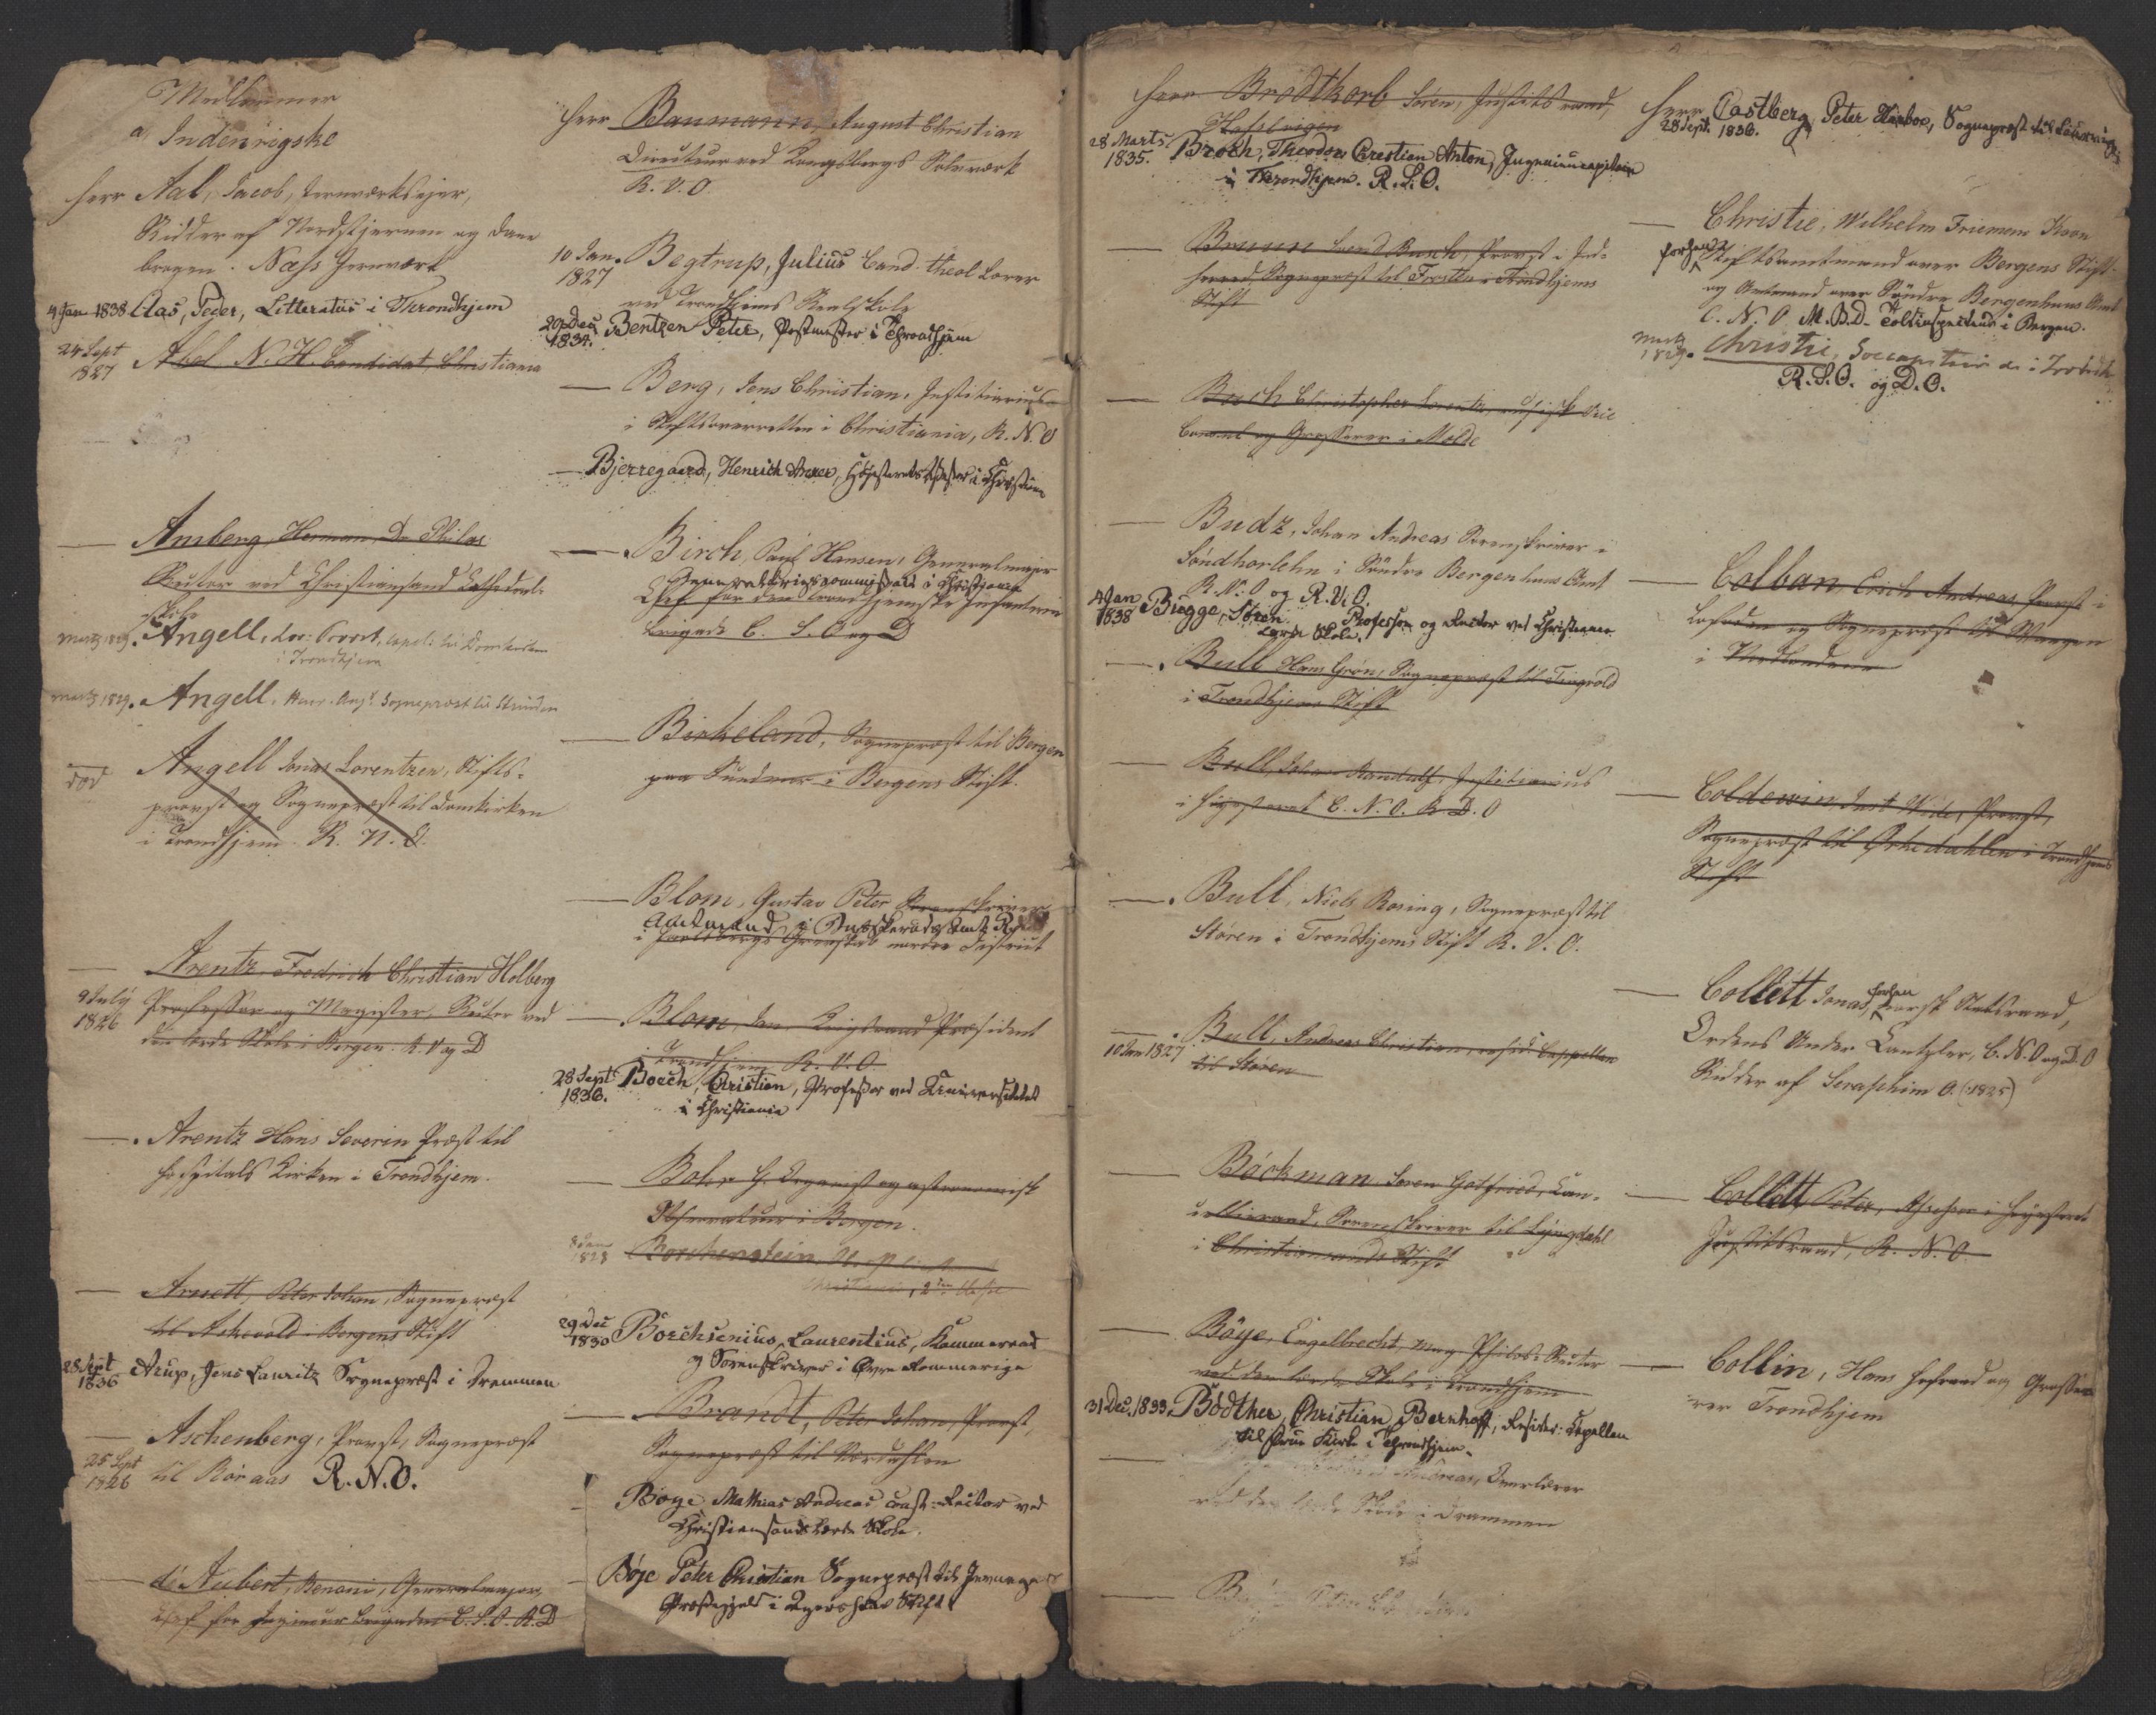 Medlemmer
a, Indenrigske
Herr Aal, Jacob, Jernværkseyer,
Ridder af Nordstjernen og Dane
brogen. Næss Jernværk
4 Jan 1838 Aas, Peder, Litteratus i Throndhjem
24 Sept 1827 Abel N. H. Candidat, Christiania
Amberg, Herman, Dr Philos
Rector ved Christiansand Cathedral-
skole
Martz 1829. Angell, Lor: Provst, Capel: til Domkirken
i Trondhjem
Martz 1829. Angell, Sognepræst til Strinden
død Angell Jonas Lorentzen, Stifts-
provst og Sognepræst til Domkirken
i Trondhjem. R. N. O.
Arentz Fredrich Christian Holberg
9 July 1826 Professor og Magister, Rector ved
den lærde Skole i Bergen. R. V og D
Arentz Hans Severin Præst til
Hospitals Kirken i Trondhjem.
Arnett, Peter Johan, Sognepræst
til Askevold i Bergens Stift
28 Sept 1836 Arup, Jens Lauritz Sognepræst i Drammen
Aschenberg, Provst, Sognepræst
25 Sept 1826 til Röraas R. N. O.
d'Aubert, Benoni, Generalmajor,
Chef for Ingenieur Brigaden C. S. O. R. D
Herr Baumann, August Christian
Directeur ved Kongsbergs Sølvværk
R. V. O.
10 Jan. 1827 Begtrup, Julius Cand. theol Lærer
ved Trondhjems Realskole
20 Dec 1834. Bentzen Peter, Postmester i Throndhjem
Berg, Jens Christian, Justitiarius
i Stiftsoverretten i Christiania, R. N. O
Bjerregaard, Henrich Anker, Höjesterets Assessor i Christiania
Birch, Paul Hansen, Generalmajor
Generalkrigscommissair i Christiania
Chef for den Trondhjemske Infanterie
Brigade C. S. O og D
Birkeland, Sognepræst til Bergen
paa Sundmør i Bergens Stift.
Blom, Gustav Peter Sorenskriver
Amtmand i Buskeruds Amt R
i Jarlsbergs Grevskab nordre District
Blom, Krigsraad Præsident
i Trondhjem R. V. O
28 Sept 1836. Boeck, Christian, Professor ved Universitetet
i Christiania
Bohr, Organist og astronomisk
Observateur i Bergen.
8 Jan 1828 Borchenstein
Christiania, 2den Classe
29 Dec 1830 Borchsenius, Laurentius, Kammerraad
og Sorenskriver i Øvre Rommerige
Brandt, Peter Johan, Provst,
Sognepræst til Værdahlen
Boye Mathias Andreas Const: Rector ved
Christiansands lærde Skole.
Böje Peter Christian Sognepræst til Jevnager
Præstegjeld i Agershuus Stift
Herr Brodtkorb Sören, Justitsraad,
28 Marts 1835. Broch, Theodor Christian Anton, Ingenieurcapitain
i Throndhjem. R. S. O.
Bruun Svend Busch, Provst i Ind-
herred, Sognepræst til Frosten i Trondhjems
Stift
Buch Christopher Lorentz, russisk Vice
Consul og Grosserer i Molde
Budz, Johan Andreas Sorenskriver i
Söndhorlehn i Söndre Bergenhuus Amt
R. N. O og R. V. O.
4 Jan 1838 Bugge, Sören Professor og Rector ved Christiania
Lærde Skole.
Bull Hans Grøn, Sognepræst til Tingvold
i Trondhjems Stift
Bull, Johan Randulf, Justitiarius
i Høyesteret C. N. O. R. D. O
Bull, Niels Rosing, Sognepræst til
Stören i Trondhjems Stift R. V. O.
10 Jan 1827 Bull, Andreas Christian, resid. Cappellan
til Stören
Böckman Sören Gotfried, Can-
cellieraad, Sorenskriver til Lyngdahl
i Christiansands Stift
Böye, Engelbrecht, Mag Philos: Rector
ved den lærde Skole i Trondhjem
31 Dec. 1833. Bödther, Christian Bernhoff, Resider: Capellan
til Frue Kirke i Throndhjem.
Andreas, Overlærer
ved den lærde Skole i Drammen
Peter Christian
Herr Castberg, Peter Harboe, Sognepræst til Laurvig
28 Sept. 1836.
Christie, Wilhelm Frieman Koren
forhen Stiftsamtmand over Bergens Stift
og Amtmand over Söndre Bergenhuus Amt
C. N. O M. B. D. Toldinspecteur i Bergen.
Martz 1829. Christie, Söecapitain
R. S. O. og D. O.
Colban, Erich Andreas Provst i
Lofoden og Sognepræst til Waagen
i Nordlandene
Coldevin, Provst,
Sognepræst til Örkedahlen i Trondhjems
Stift
Collett Jonas, forhen norsk Statsraad,
Ordens Under Cantzler, C. N. O og D. O
Ridder af Seraphim O. (1825)
Collett, Peter, Assessor i Høyesteret
Justitsraad, R. N. O.
Collin, Hans Hofraad og Grosse-
rer Trondhjem